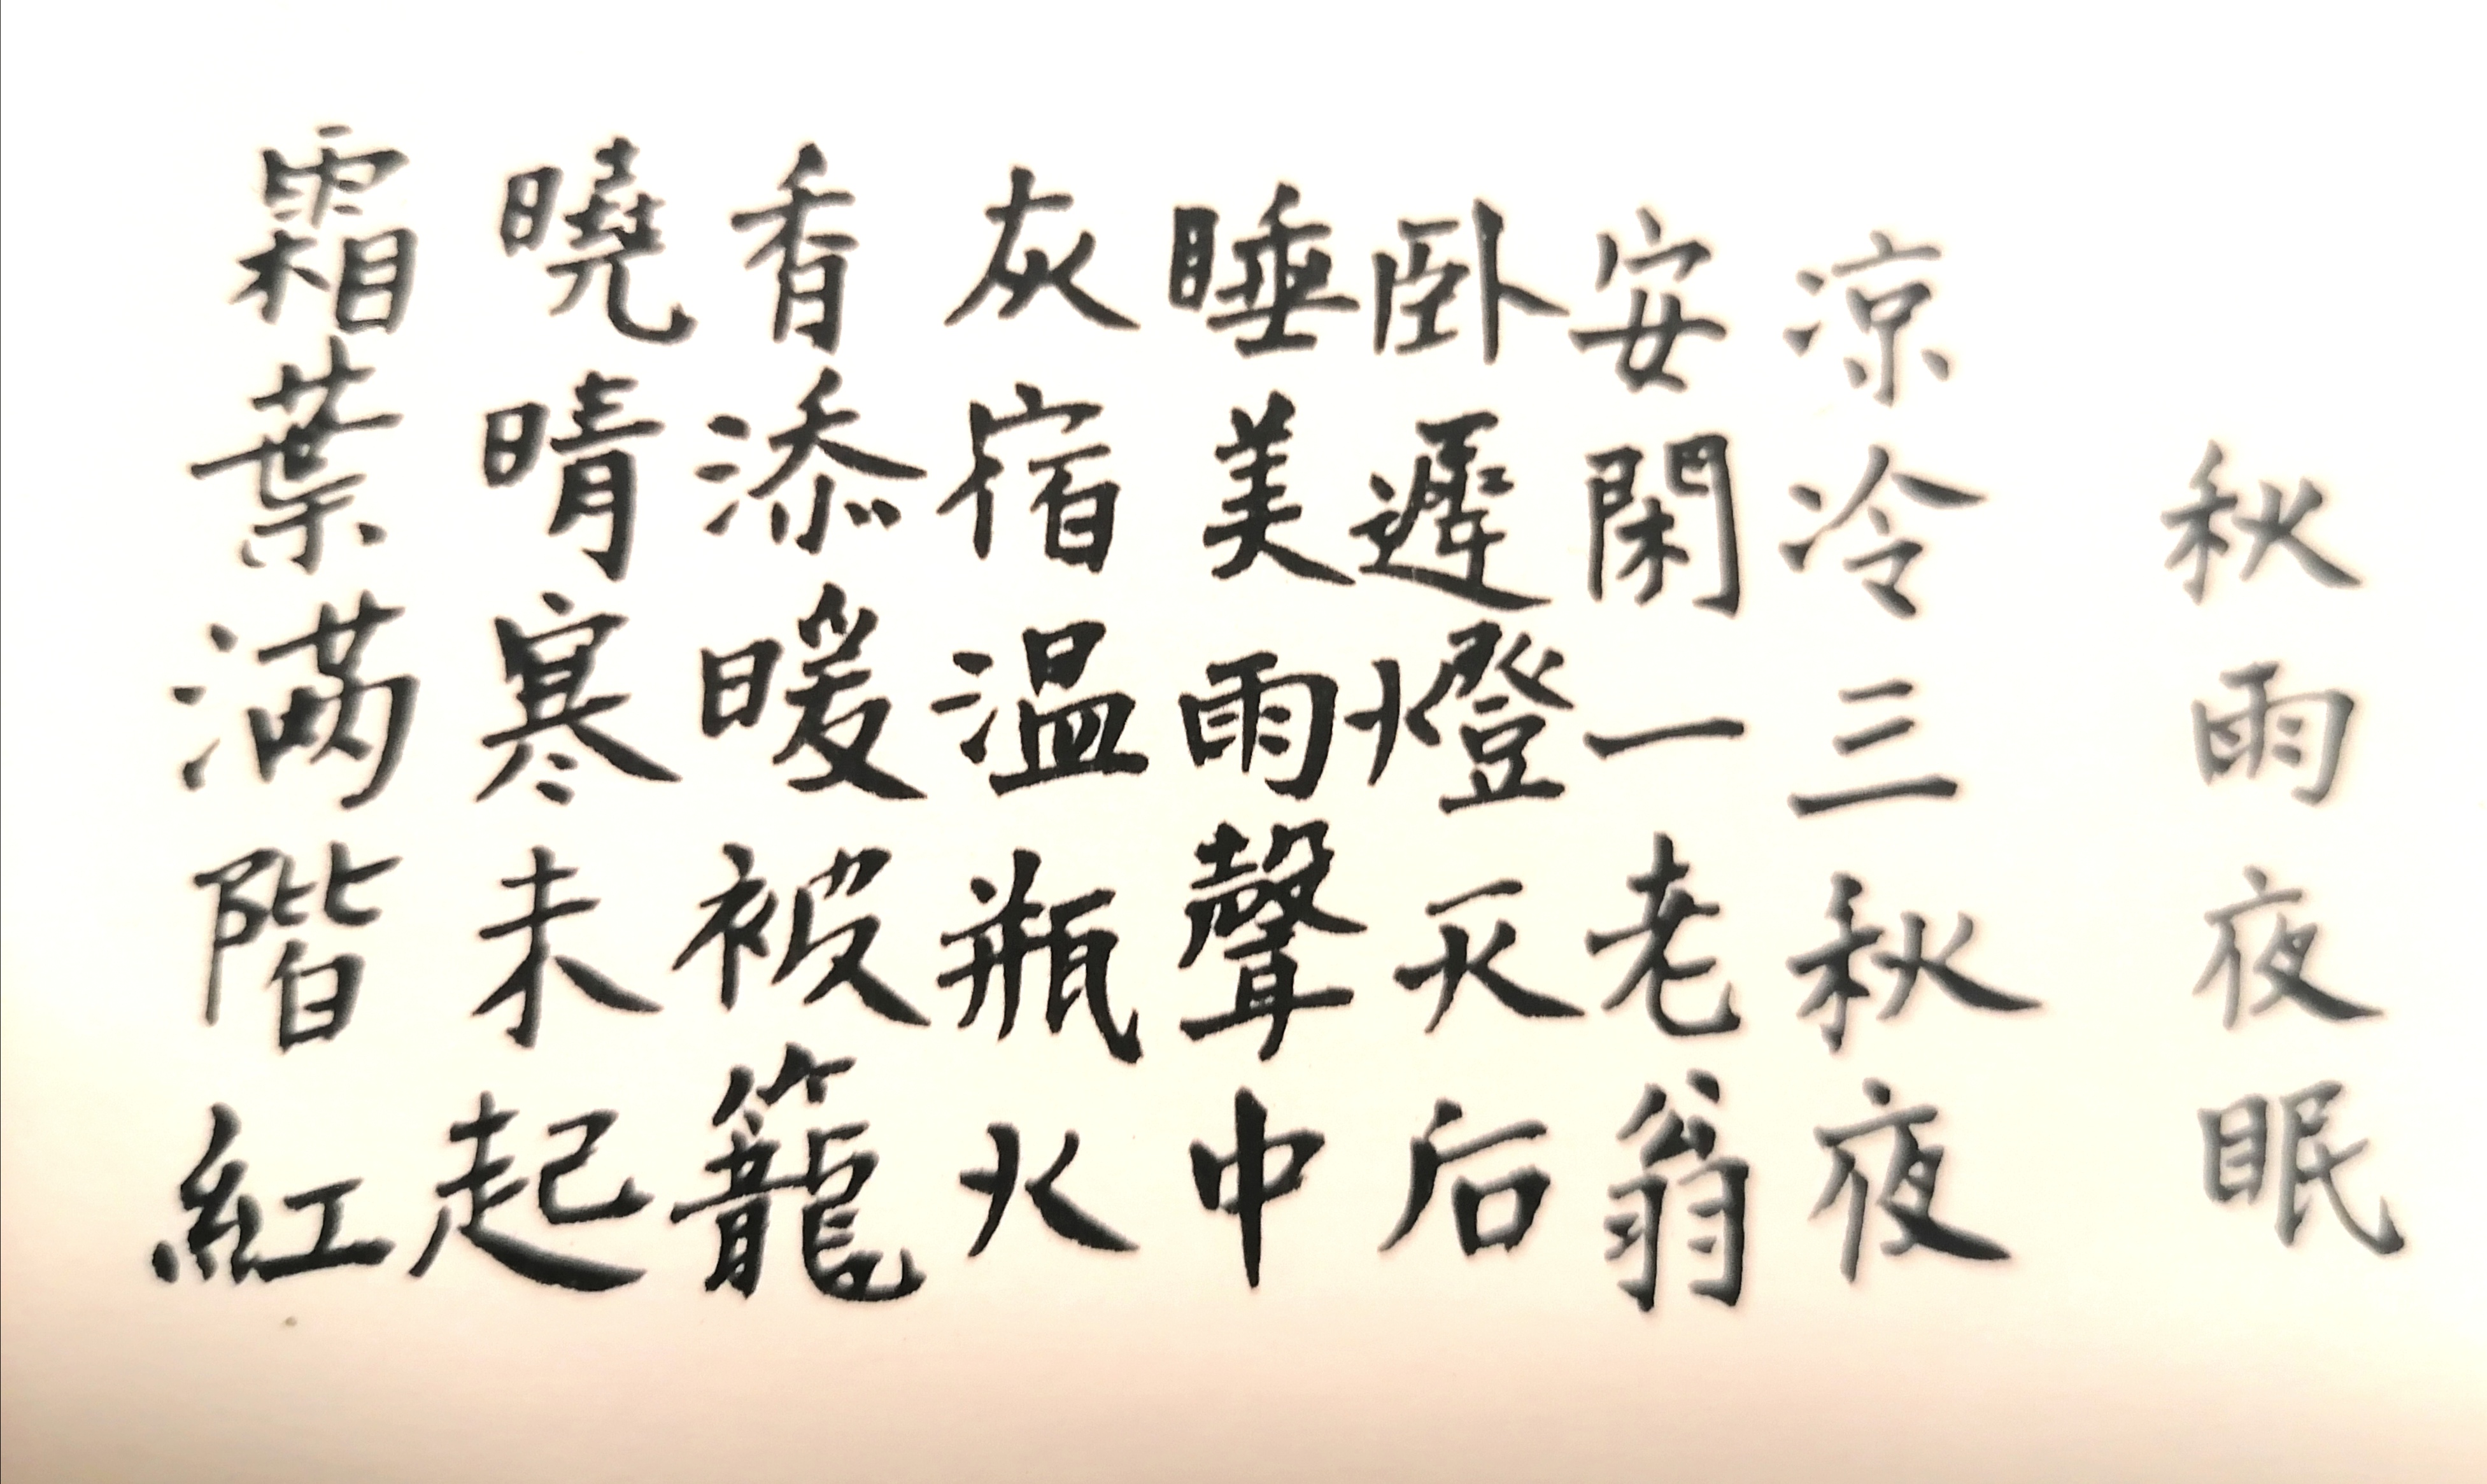 秋雨夜眠
凉冷三秋夜
安閑一老翁
卧遲燈灭后
睡美雨聲中
灰宿温瓶火
香添暖被籠
曉晴寒未起
霜葉滿階紅